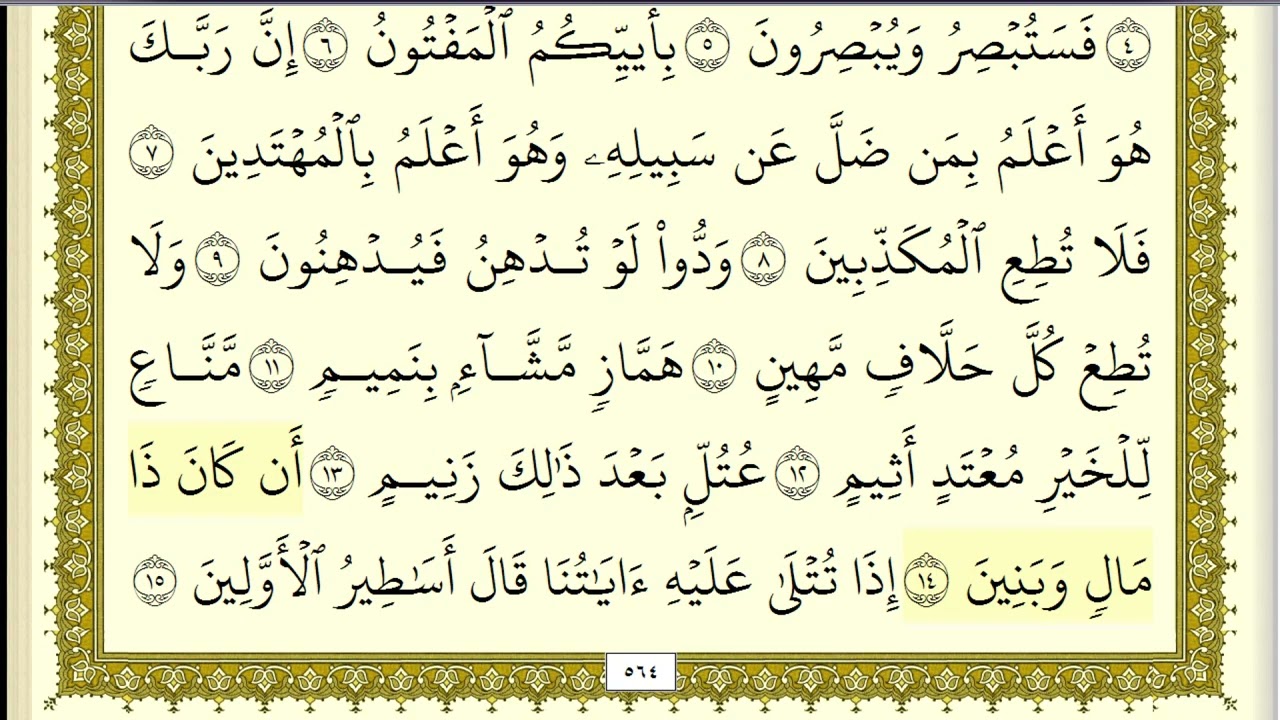 ٤ فَسَتُبۡصِرُ وَيُبۡصِرُونَ ٥ بِأَييِّكُمُ ٱلۡمَفۡتُونُ ٦ إِنَّ رَبَّكَ
هُوَ أَعۡلَمُ بِمَن ضَلَّ عَن سَبِيلِهِۦ وَهُوَ أَعۡلَمُ بِٱلۡمُهۡتَدِينَ ٧
فَلَا تُطِعِ ٱلۡمُكَذِّبِينَ ٨ وَدُّواْ لَوۡ تُدۡهِنُ فَيُدۡهِنُونَ ٩ وَلَا
تُطِعۡ كُلَّ حَلَّافٖ مَّهِينٍ ١٠ هَمَّازٖ مَّشَّآءِۭ بِنَمِيمٖ ١١ مَّنَّاعٖ
لِّلۡخَيۡرِ مُعۡتَدٍ أَثِيمٍ ١٢ عُتُلِّۭ بَعۡدَ ذَٰلِكَ زَنِيمٍ ١٣ أَن كَانَ ذَا
مَالٖ وَبَنِينَ ١٤ إِذَا تُتۡلَىٰ عَلَيۡهِ ءَايَٰتُنَا قَالَ أَسَٰطِيرُ ٱلۡأَوَّلِينَ ١٥
٥٦٤